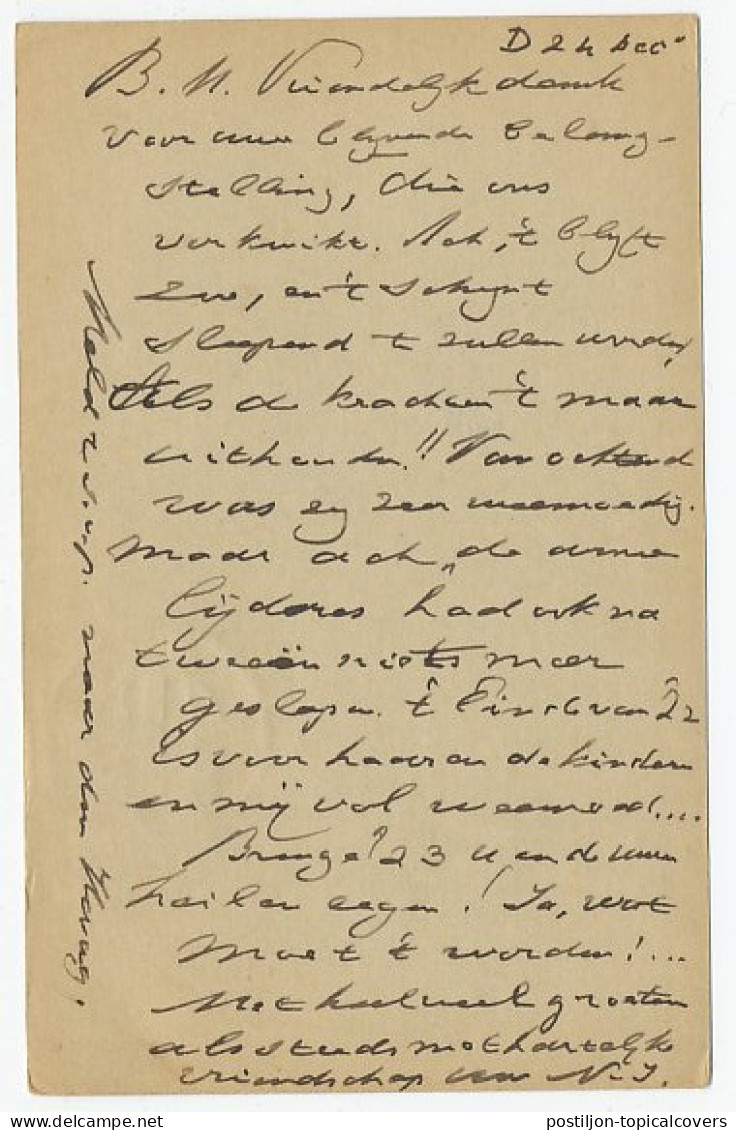 D 24 Dec
B. N. Vriendelijk dank
voor uwe blyvende belang-
stelling, die ons
verkwikt. Ach, 't blyft
zoo, en 't schynt
sleepend te zullen worden,
Als de krachten 't maar
uithouden!! Van ochtend
was zy zeer weemoedig.
Maar ach, de arme
lijderes had ook na
tweeën niets meer
geslapen. 't Einde van '22
is voor haar en de kinderen
en mij vol weemoed....
Brenge '23 u en de uwen
heil en zegen! Ja, wat
moet 't worden!...
Met heel veel groeten
als steeds met hartelijke
vriendschap uw N. J.
Meld z. s. v. p. naar den Haag.
postiljon-topicalcovers